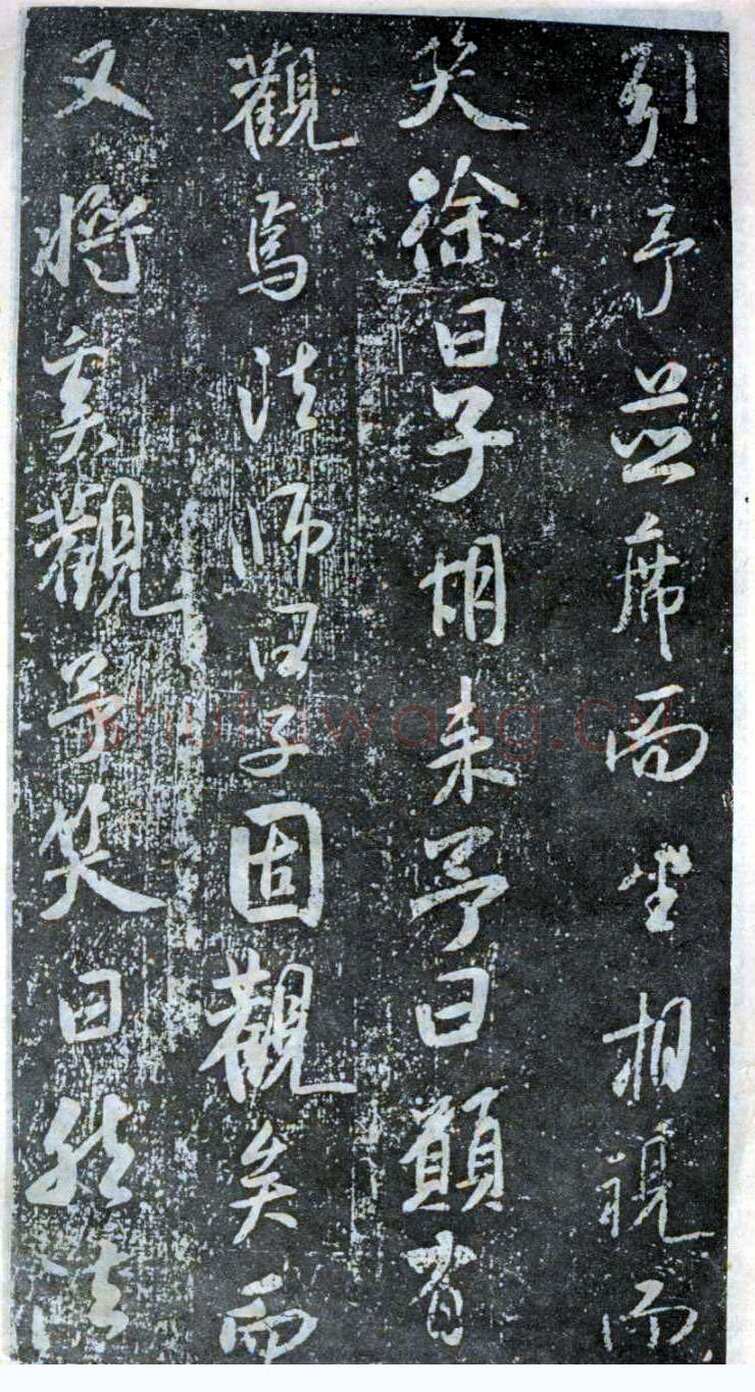 引予並席而坐相視而
笑徐曰子胡来予曰願有
觀焉法師曰子固觀矣而
又將奚觀予笑曰然法
shufawang.cn